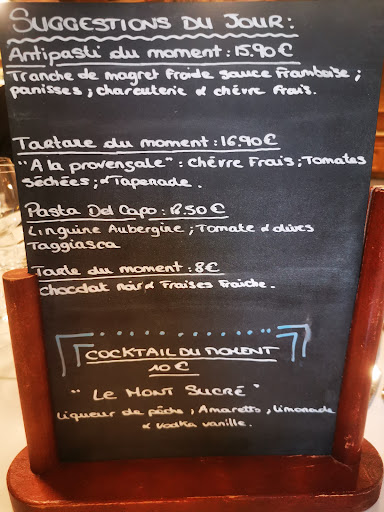 SUGGESTIONS DU JOUR:
Antipasti du moment : 15.90 €
Tranche de magret froide sauce framboise ;
panisses ; charcuterie & chévre frais.
Tartare du moment : 16.90 €
"A la provensale" : Chévre Frais ; Tomates
Séchées ; & Tapenade.
Pasta Del Capo : 18.50 €
Linguine Aubergine ; Tomate & olives
Taggiasca
Tarte du moment : 8 €
Chocolat noir & Fraises Fraiche.
COCKTAIL DU MOMENT
10 €
" LE MONT SUCRÉ "
Liqueur de pêche ; Amaretto ; limonade
& vodka vanille.